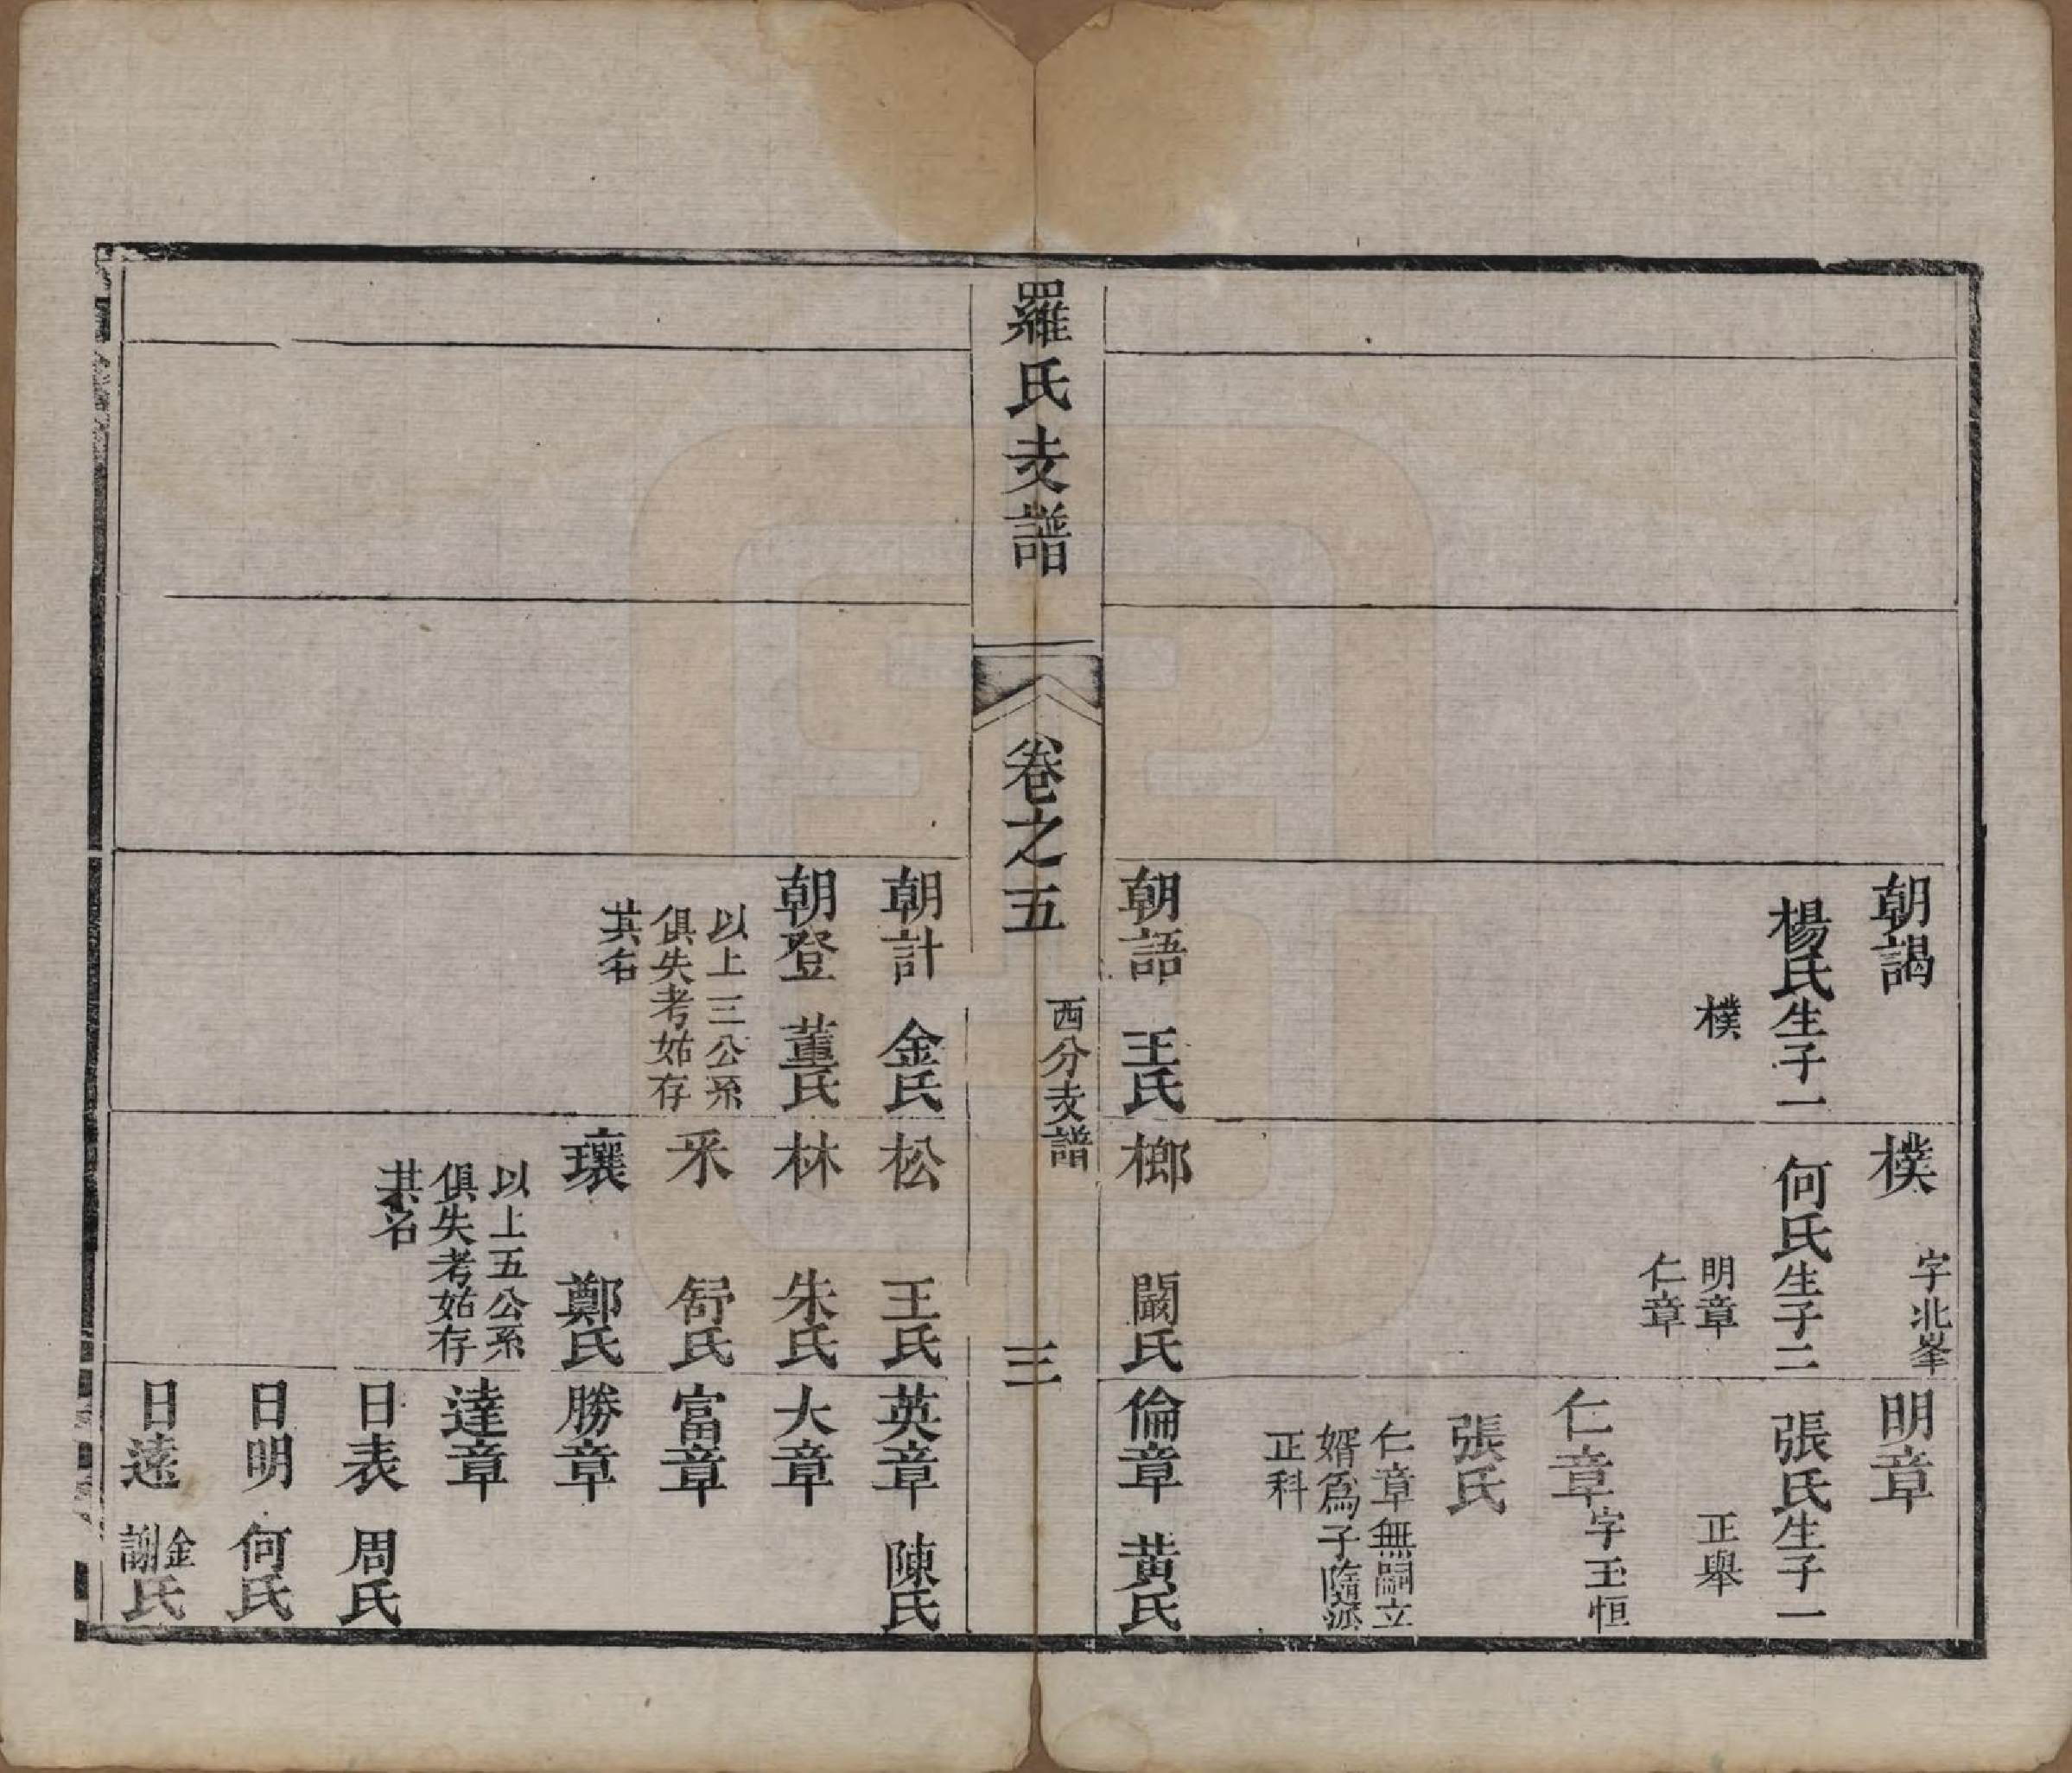 朝謁
楊氏生子一
樸
朝語　王氏
樸　字北峯
何氏生子二
明章
仁章
榔　闞氏
明章
張氏生子一
正舉
仁章　字玉恒
張氏
仁章無嗣立
婿為子隨派
正科
倫章　黃氏
羅氏支譜
卷之五
西分支譜
三
朝計　金氏
朝登　董氏
以上三公系
俱失考始存
其名
松　王氏
林　朱氏
采　舒氏
瓖　鄭氏
以上五公系
俱失考始存
其名
英章　陳氏
大章
富章
勝章
達章
日表　周氏
日明　何氏
日遠　金謝氏